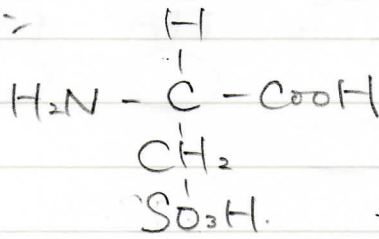 H
H₂N - C - COOH
CH₂
SO₃H.